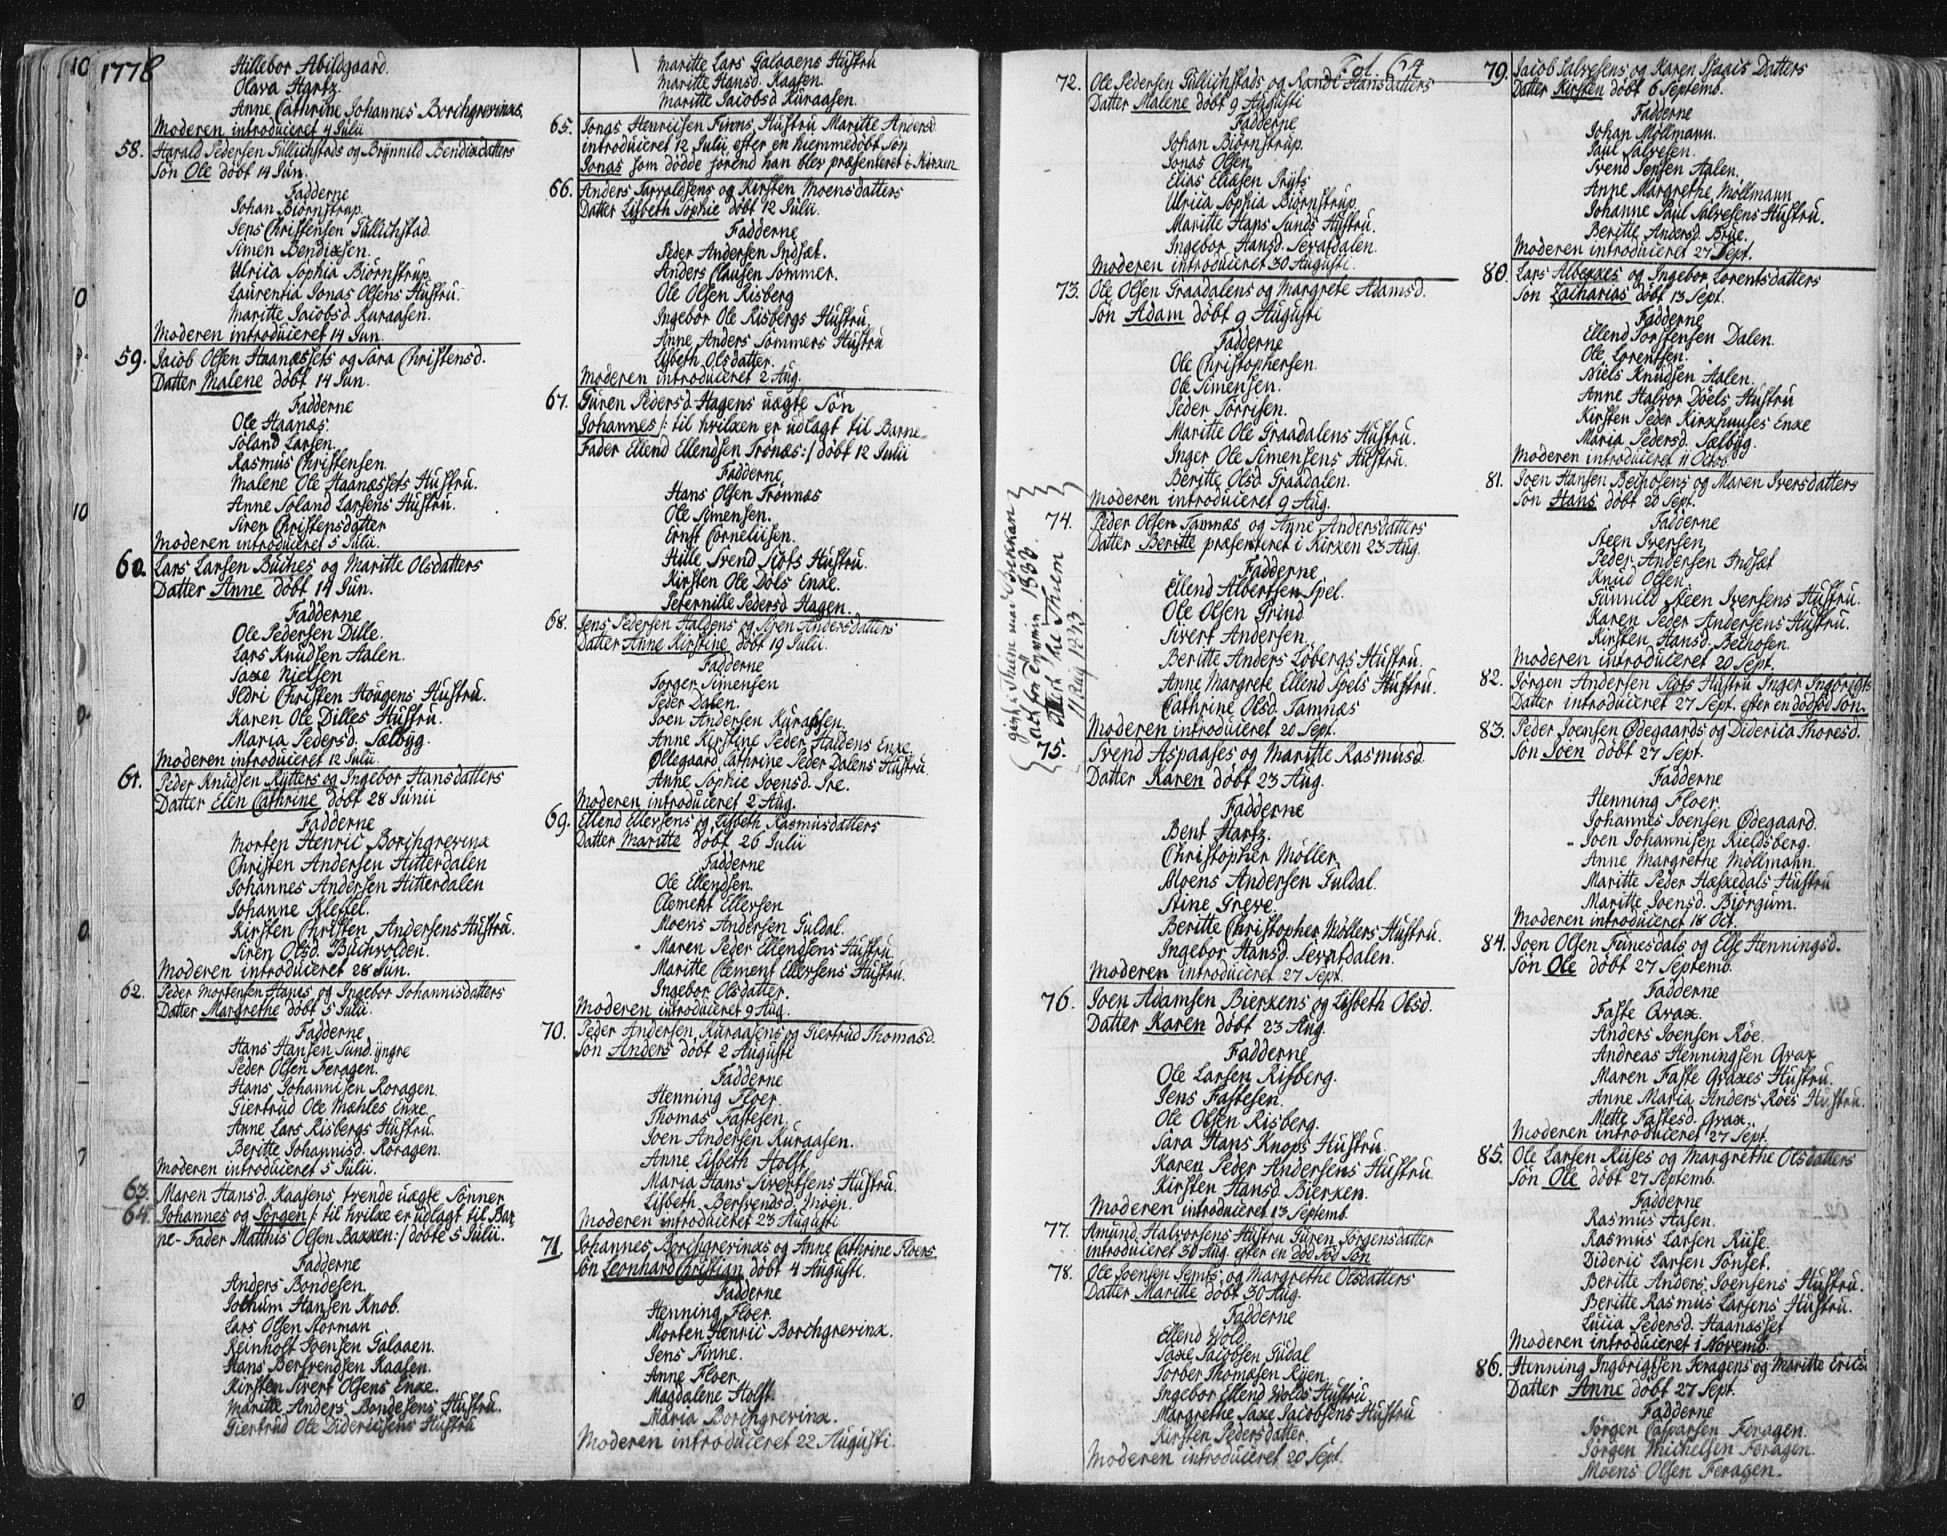 1778
Hillebor Abildgaard.
Olava Hartz.
Anne Cathrine Johannes Borchgrevinxs.
Moderen introduiceret 4 Julii
58. Harald Pedersen Gullichstads og Brynnild Bendixdatters
Søn Ole døbt 14 Jun.
Fadderne
Johan Biørnstrup.
Jens Christensen Gullichstad
Simen Bendixsen.
Ulrica Sophia Biørnstrup.
Laurentia Jonas Olsens Hustru.
Maritte Jacobsd. Kuraasen.
Moderen introduiceret 14 Jun.
59. Jacob Olsen Haanæssets og Sara Christensd.
Datter Malene døbt 14 Jun.
Fadderne
Ole Haanæs.
Soland Larsen.
Rasmus Christensen
Malene Ole Haanæssets Hustru.
Anne Soland Larsens Hustru.
Siren Christensdatter
Moderen introduiceret 5 Julii.
60. Lars Larsen Buches og Maritte Olsdatters
Datter Anne døbt 14 Jun.
Fadderne
Ole Pedersen Dille.
Lars Knudsen Aalen.
Saxe Nielsen
Ildri Christen Hougens Hustru.
Karen Ole Dilles Hustru.
Maria Pedersd. Sælbyg.
Moderen introduiceret 12 Julii.
61. Peder Knudsen Rytters og Ingebor Hansdatters
Datter Elen Cathrine døbt 28 Junii
Fadderne
Morten Henric Borchgrevinx
Christen Andersen Hitterdalen
Johannes Andersen Hitterdalen
Johanne Kleftel.
Kirsten Christen Andersens Hustru.
Siren Olsd. Buchvolden.
Moderen introduiceret 28 Jun.
62. Peder Mortensen Hanes og Ingebor Johannisdatters
Datter Margrethe døbt 5 Julii.
Fadderne
Hans Hansen Sund yngre
Peder Olsen Feragen.
Hans Johannisen Roragen.
Giertrud Ole Mæhles Enxe.
Anne Lars Risbergs Hustru.
Beritte Johannisd. Roragen.
Moderen introduiceret 5 Julii.
63. Maren Hansd. Kaasens tvende uægte Sønner
64. Johannes og Jørgen /: til hvilxe er udlagt til Bar
ne-Fader Matthis Olsen Baxxen :/ døbte 5 Julii.
Fadderne
Anders Bondesen.
Jochum Hansen Knob.
Lars Olsen Storman
Reinholt Joensen Galaaen.
Hans Bersvendsen Kaasen.
Kirsten Sivert Olsens Enxe.
Maritte Anders Bondesens Hustru.
Giertrud Ole Didericsens Hustru
Maritte Lars Galaaens Hustru
Maritte Hansd. Kaasen.
Maritte Jacobsd Kuraasen.
65. Jonas Henricsen Finns Hustru Maritte Andersd
introduiceret 12 Julii efter en hiemmedøbt Søn
Jonas som døde førend han blev præsenteret i Kirxen
66. Anders Tarvaldsens og Kirsten Moensdatters
Datter Lisbeth Sophie døbt 12 Julii.
Fadderne
Peder Andersen Indsæt.
Anders Clausen Sommer.
Ole Olsen Risberg
Ingebor Ole Risbergs Hustru
Anne Anders Sommers Hustru
Lisbeth Olsdatter.
Moderen introduiceret 2 Aug.
67. Guren Pedersd. Hagens uægte Søn
Johannes /: til hvilxen er udlagt til Barne-
Fader Ellend Ellendsen Trønæs :/ døbt 12 Julii
Fadderne
Hans Olsen Trønnæs
Ole Simensen.
Ernst Corneliisen.
Hille Svend Slots Hustru.
Kirsten Ole Døls Enxe.
Peternille Pedersd Hagen.
68. Jens Pedersen Haldens og Siren Andersdatters
Datter Anne Kirstine døbt 19 Julii.
Fadderne
Torger Simensen
Peder Dalen.
Joen Andersen Kuraasen.
Anne Kirstine Peder Haldens Enxe.
Ollegaard Cathrine Peder Dalens Hustru
Anne Sophie Joensd. Ire.
Moderen introduiceret 2 Aug.
69. Ellend Ellevsens og Lisbeth Rasmusdatters
Datter Maritte døbt 26 Julii
Fadderne
Ole Ellendsen.
Clement Ellevsen
Moens Andersen Guldal.
Maren Peder Ellendsens Hustru.
Maritte Clement Ellevsens Hustru.
Ingebor Olsdatter.
Moderen introduiceret 9 Aug.
70. Peder Andersen Kuraasens og Giertrud Thomasd.
Søn Anders døbt 2 Augusti
Fadderne
Henning Floer.
Thomas Fastesen.
Joen Andersen Kuraasen.
Anne Lisbeth Holst
Maria Hans Sivertsens Hustru.
Lisbeth Bersvendsd. Moen.
Moderen introduiceret 23 Augusti
71. Johannes Borchgrevinxs og Anne Cathrine Floers
Søn Leonhard Christian døbt 4 Augusti.
Fadderne
Henning Floer.
Morten Henric Borchgrevinx.
Jens Finne.
Anne Floer.
Magdalene Holst.
Maria Borchgrevinx.
Moderen introduiceret 22 Augusti.
Fol. 64
72. Ole Pedersen Gullichstads og Randi Hansdatters
Datter Malene døbt 9 Augusti
Fadderne
Johan Biørnstrup.
Jonas Olsen
Elias Eliæsen Pryts
Ulrica Sophia Biørnstrup.
Maritte Hans Sunds Hustru.
Ingebor Hansd. Sevatdalen.
Moderen introduiceret 30 Augusti.
73. Ole Olsen Graadalens og Margrete Adamsd.
Søn Adam døbt 9 Augusti
Fadderne
Ole Christophersen.
Ole Simensen.
Peder Torrisen.
Maritte Ole Graadalens Hustru.
Inger Ole Simensens Hustru.
Beritte Olsd Graadalen.
Moderen introduiceret 9 Aug.
74. Peder Olsen Tamnæs og Anne Andersdatters
Datter Beritte præsenteret i Kirxen 23 Aug.
Fadderne
Ellend Albertsen Spel.
Ole Olsen Grind
Sivert Andersen.
Beritte Anders Løbergs Hustru.
Anne Margrete Ellend Spels Hustru.
Cathrine Olsd. Tamnæs
Moderen introduiceret 20 Sept.
75. Svend Aspaases og Maritte Rasmusd.
Datter Karen døbt 23 Aug.
Fadderne
Bent Hartz.
Christopher Møller
Moens Andersen Guldal.
Stine Greve.
Beritte Christopher Møllers Hustru.
Ingebor Hansd. Sevatdalen.
Moderen introduiceret 27 Sept.
76. Joen Adamsen Bierxens og Lisbeth Olsd.
Datter Karen døbt 23 Aug.
Fadderne
Ole Larsen Risberg.
Jens Fastesen.
Ole Olsen Risberg.
Sara Hans Knops Hustru.
Karen Peder Andersens Hustru.
Kirsten Hansd. Bierxen.
Moderen introduiceret 13 Septemb.
77. Amund Halvorsens Hustru Guren Jørgensdatter
introduiceret 30 Aug. efter en dødfød Søn
78. Ole Joensen Semts og Margrethe Olsdatters
Datter Maritte døbt 30 Aug.
Fadderne
Ellend Wold
Saxe Jacobsen Gudal
Torber Thomæsen Ryen.
Ingebor Ellend Wolds Hustru.
Margrethe Saxe Jacobsens Hustru
Kirsten Pedersdatter.
Moderen introduiceret 20 Sept.
79. Jacob Salvesens og Karen Isagis Datters
Datter Kirsten døbt 6 Septemb.
Fadderne
Johan Møllmann.
Paul Salvesen.
Svend Jensen Aalen.
Anne Margrethe Møllmann
Johanne Paul Salvesens Hustru.
Beritte Andersd. Brue.
Moderen introduiceret 27 Sept.
80. Lars Albexxes og Ingebor Lorentsdatters
Søn Zacharias døbt 13 Sept.
Fadderne
Ellend Torstensen Dalen.
Ole Lorentsen.
Niels Knudsen Aalen.
Anne Halvor Døels Hustru
Kirsten Peder Kirxhuuses Enxe
Maria Pedersd. Sælbyg.
Moderen introduiceret 11 Octob.
81. Joen Hansen Bechosens og Maren Iversdatters
Søn Hans døbt 20 Sept.
Fadderne
Steen Iversen.
Peder Andersen Indsæt
Knud Olsen
Gunnild Steen Iversens Hustru.
Karen Peder Andersens Hustru.
Kirsten Hansd. Bechosen.
Moderen introduiceret 20 Sept.
82. Jørgen Andersen Slots Hustru Inger Ingbrigts
Datter introduiceret 27 Sept. efter en dødfød Søn.
83. Peder Joensen Ødegaards og Diderica Thoresd.
Søn Joen døbt 27 Sept.
Fadderne
Henning Floer.
Johannes Joensen Ødegaard.
Joen Johannisen Kieldsberg.
Anne Margrethe Møllmann.
Maritte Peder Hæsxedals Hustru
Maritte Joensd. Biørgum.
Moderen introduiceret 18 Oct.
84. Joen Olsen Funesdals og Else Henningsd.
Søn Ole døbt 27 Septemb.
Fadderne
Faste Qvax.
Anders Joensen Røe.
Andreas Henningsen Qvax
Maren Faste Qvaxes Hustru.
Anne Maria Anders Røes Hustru.
Mette Fastesd. Qvax.
Moderen introduiceret 27 Sept.
85. Ole Larsen Ruses og Margrethe Olsdatters
Søn Ole døbt 27 Septemb.
Fadderne
Rasmus Aasen.
Rasmus Larsen Ruse.
Dideric Larsen Tønset.
Beritte Anders Joensens Hustru.
Beritte Rasmus Larsens Hustru.
Lucia Pedersd. Haanæsset
Moderen introduiceret 1 Novemb.
86. Henning Ingbrigtsen Feragens og Maritte Erics
Datter Anne døbt 27 Sept.
Fadderne
Jørgen Casparsen Feragen.
Jørgen Michelsen Feragen.
Moens Olsen Feragen.